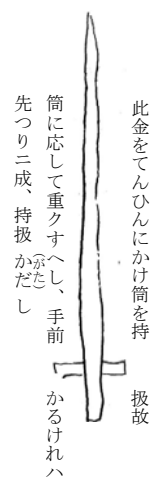 此金をてんひんにかけ筒を持　扱故
筒に応して重クすへし、手前　かるけれハ
先つりニ成、持扱かだ(がた)し